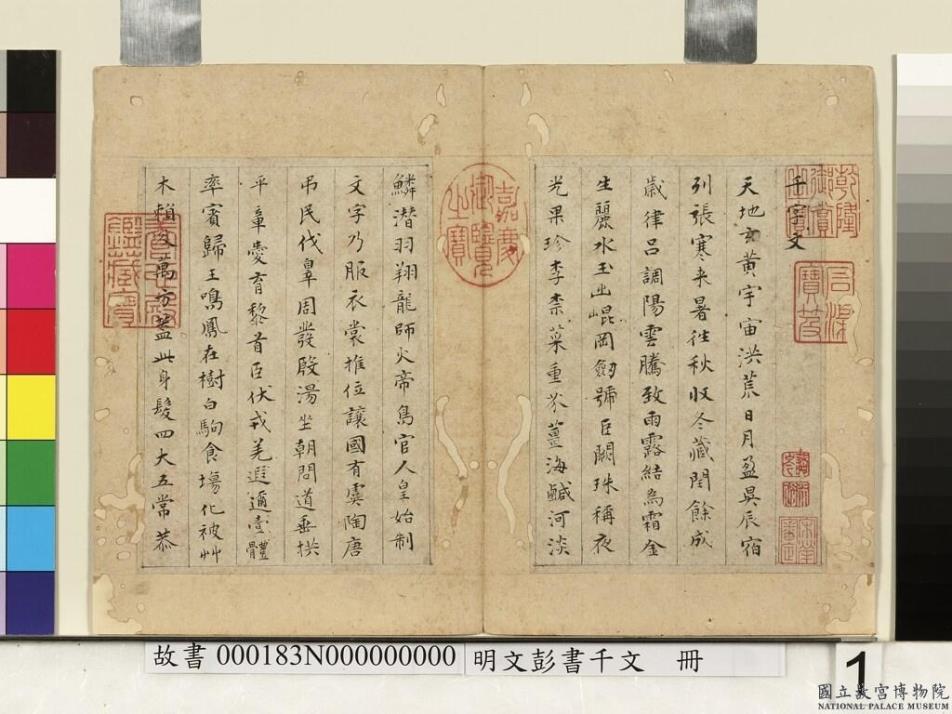 乾隆御賞之寶
石渠寶笈
千字文
天地玄黃宇宙洪荒日月盈昃辰宿
列張寒来暑往秋收冬藏閏餘成
歲律呂調陽雲騰致雨露結為霜金
生麗水玉出崐岡劒號巨闕珠稱夜
光果珍李柰菜重芥薑海鹹河淡
嘉慶御覽之寶
鱗潛羽翔龍師火帝鳥官人皇始制
文字乃服衣裳推位讓國有虞陶唐
吊民伐辠周發殷湯坐朝問道垂拱
平章愛育黎首臣伏戎羌遐邇壹體
率賓歸王鳴鳳在樹白駒食場化被艸
木賴及萬方蓋此身髮四大五常恭
養心殿鑑藏寶
故書 000183N000000000
明文彭書千文 冊
1
國立故宮博物院
NATIONAL PALACE MUSEUM